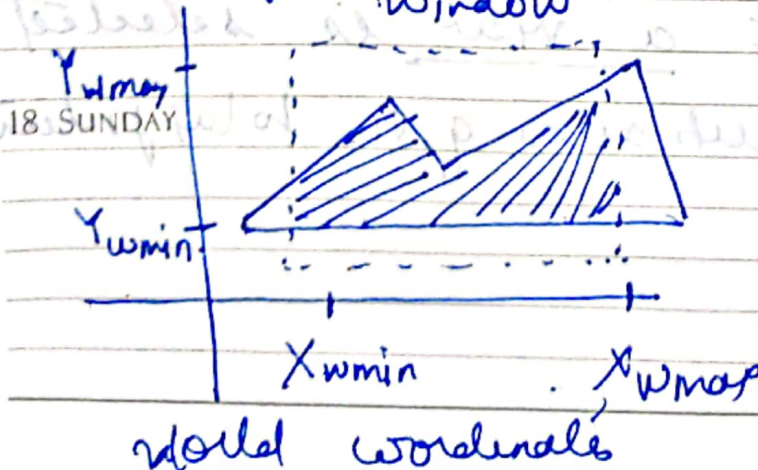 Window
Ywmax
18 SUNDAY
Ywmin
Xwmin Xwmax
World coordinates